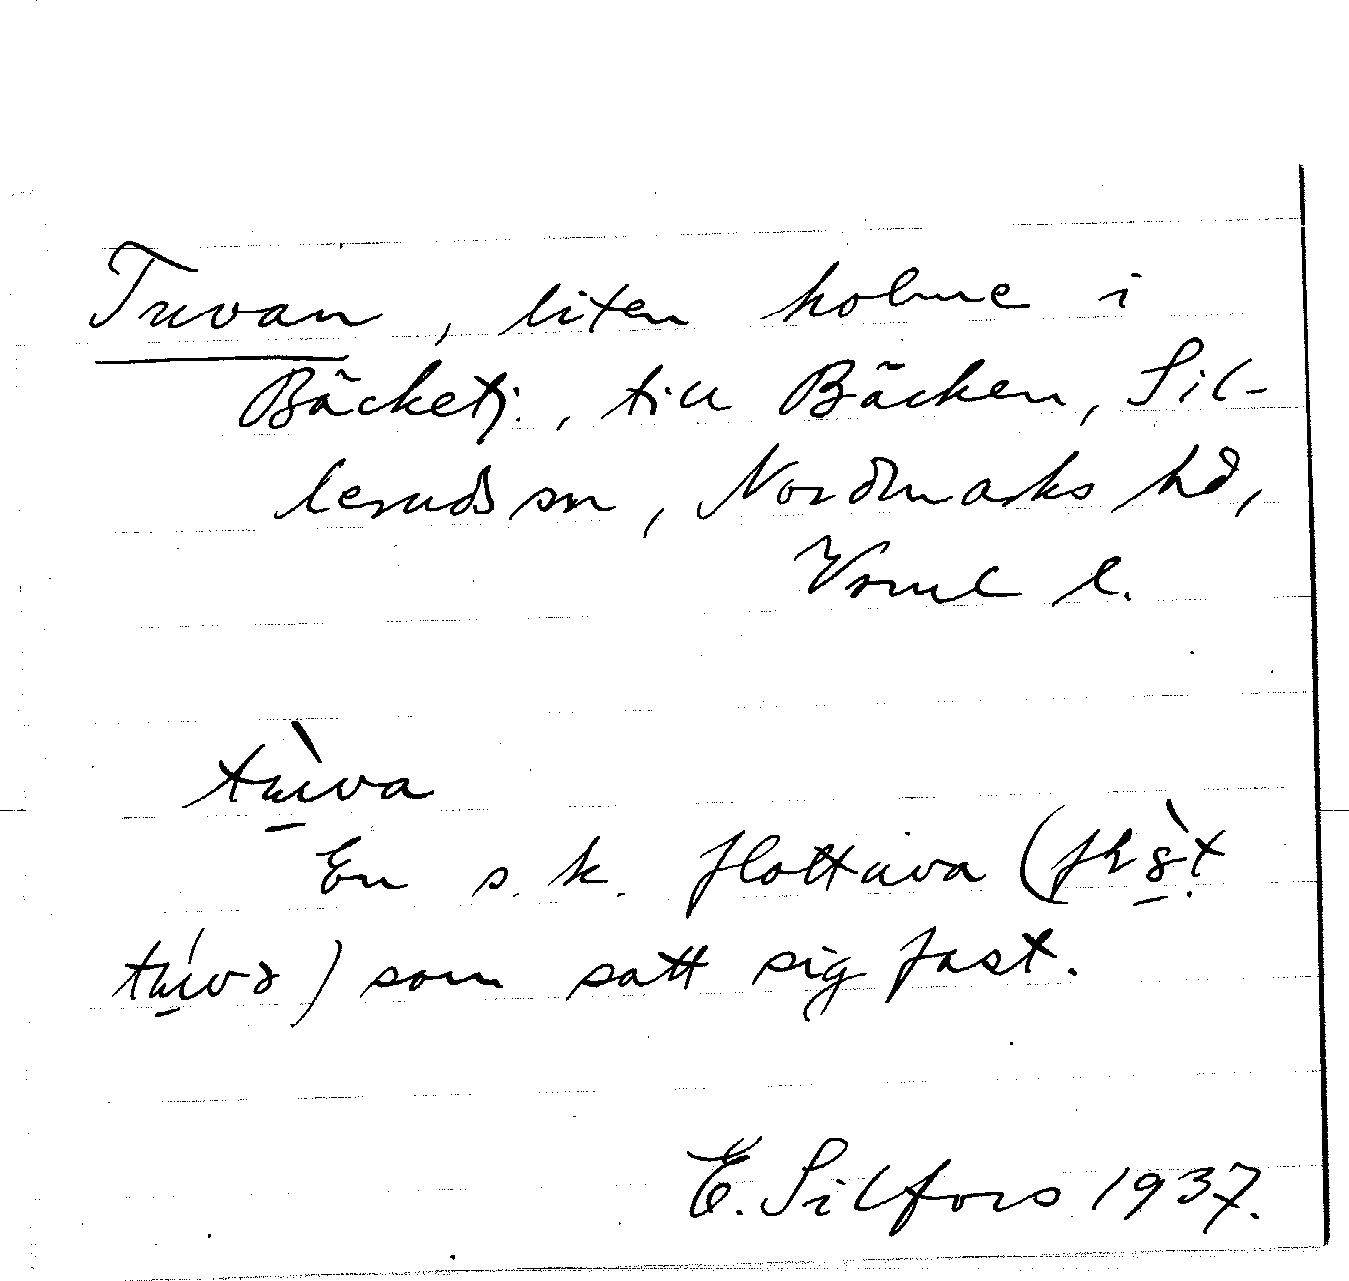 Tuvan, liten holme i
Bäcketj., till Bäcken, Sil-
leruds sn, Nordmarks hd,
Vrml l.
tù̱va
En s. k. flottuva (
tú̱va) som satt sig fast.
E. Silfors 1937.